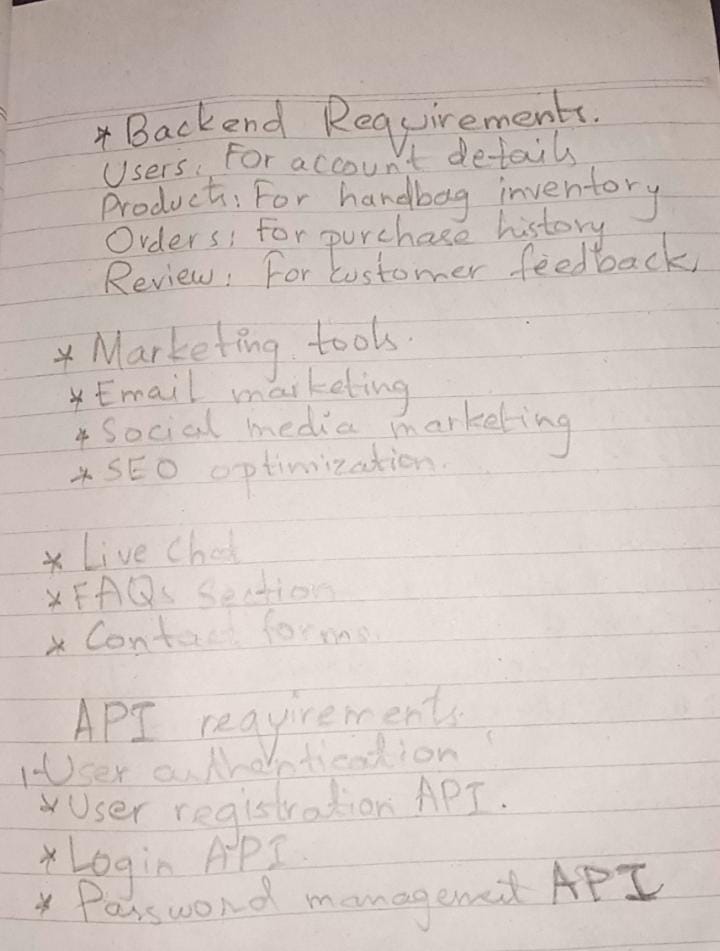 * Backend Requirements.
Users: For account details
Products: For handbag inventory
Orders: For purchase history
Review: For customer feedback.
* Marketing tools.
* Email marketing
* Social media marketing
* SEO optimization.
* Live Chat
* FAQs Section
* Contact forms.
API requirements.
1-User authentication
* User registration API.
* Login API.
* Password management API